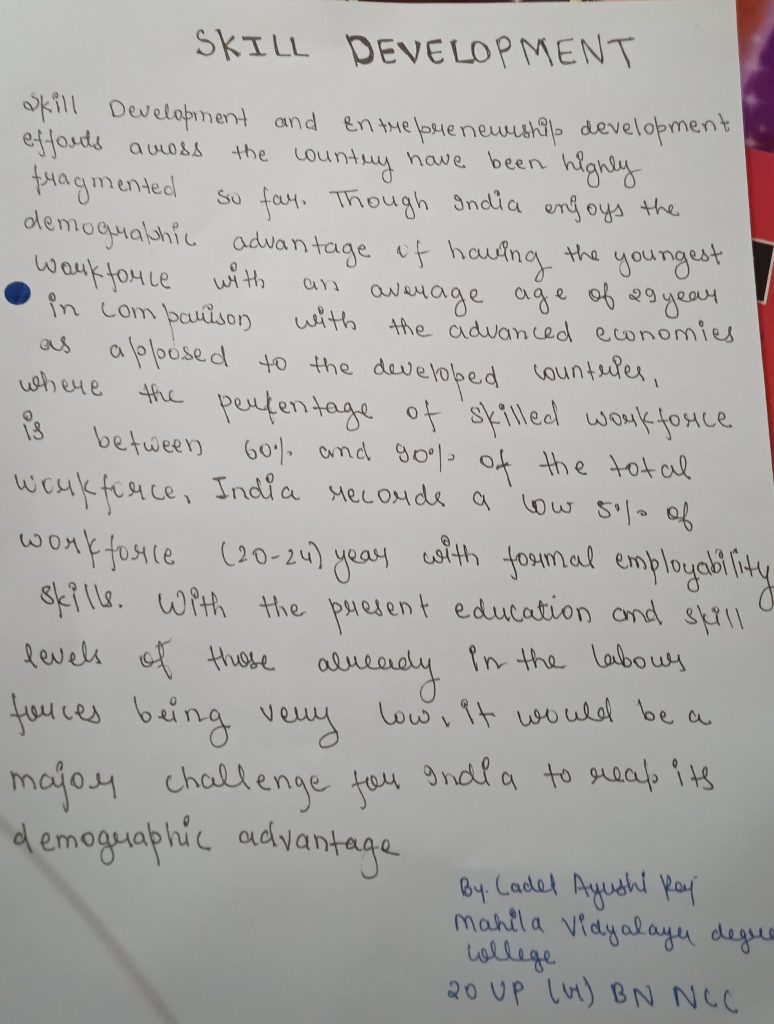 SKILL DEVELOPMENT
Skill Development and Entrepreneurship development
effords across the country have been highly
fragmented so far. Though India enjoys the
demographic advantage of having the youngest
workforce with an average age of 29 year
in comparison with the advanced economies
as apposed to the developed countries,
where the perfentage of skilled workforce
is between 60% and 90% of the total
workforce, India records a low 5% of
workforce (20-24) year with formal employability
skills. With the present education and skill
levels of those already in the labour
forces being very low, it would be a
major challenge for India to reap its
demographic advantage
By. Cadet Ayushi Raj
Mahila Vidyalaya degree
College
20 UP BN NCC